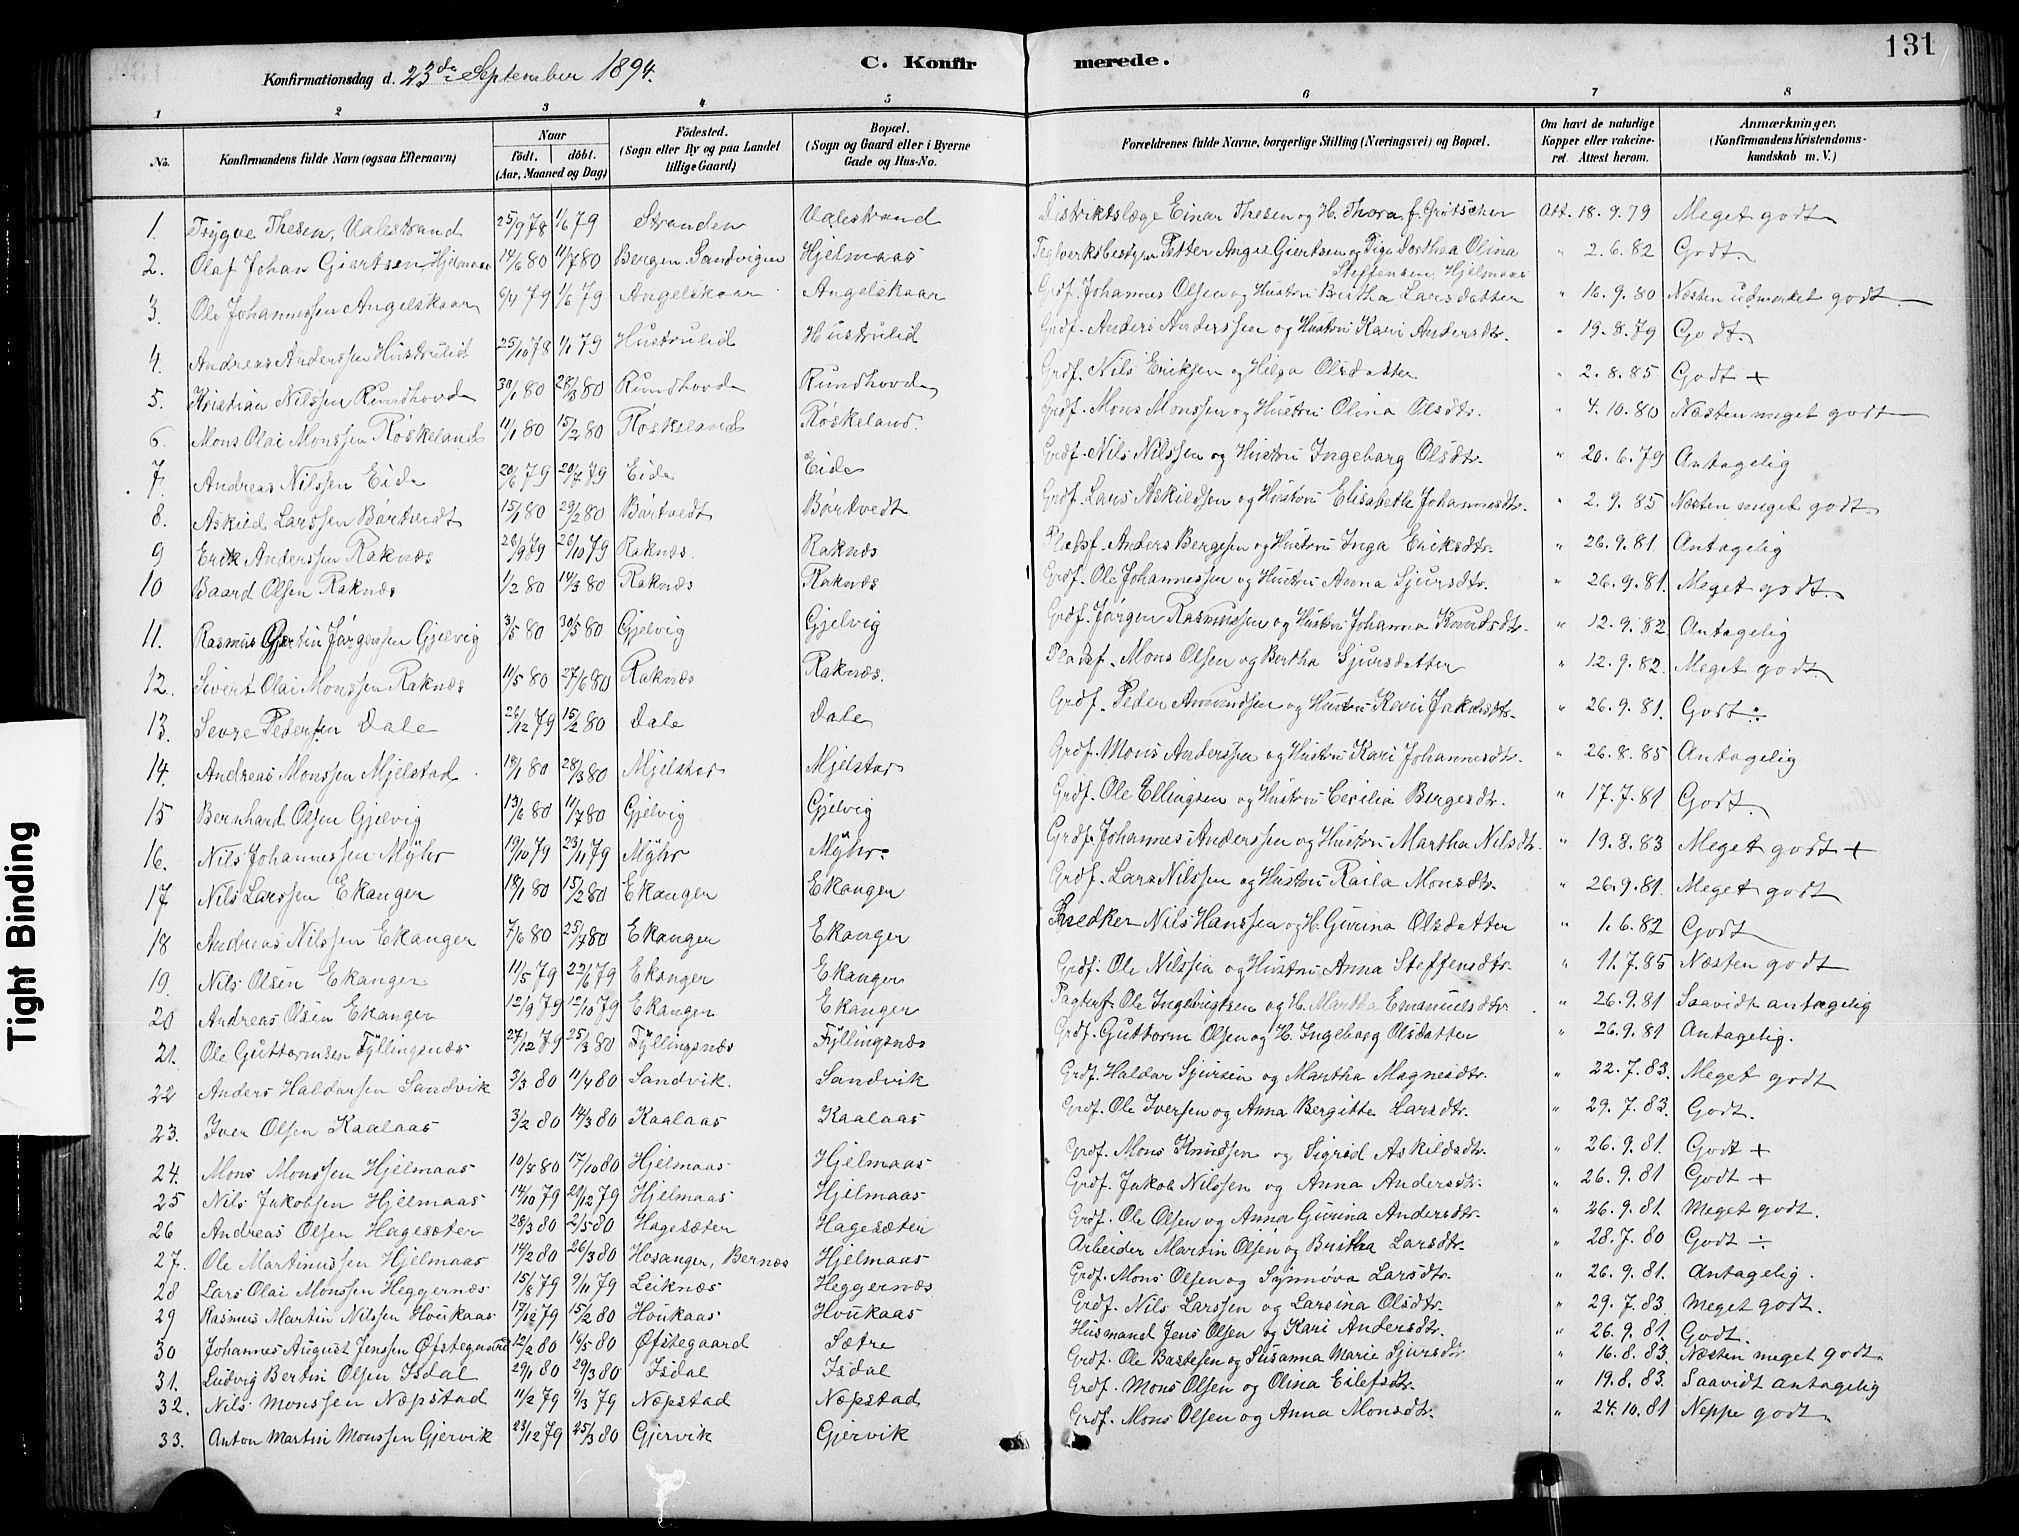 131
Konfirmationsdag d. 23de September 1894. C. Konfirmerede.
1 2 3 4 5 6 7 8
No. Konfirmandens fulde Navn (ogsaa Efternavn) Naar födt. döbt. (Aar, Maaned og Dag) Födested. (Sogn eller By og paa Landet tillige Gaard) Bopæl. (Sogn og Gaard eller i Byerne Gade og Hus-No. Forældrenes fulde Navne, borgerlige Stilling (Næringsvei) og Bopæl. Om havt de naturlige Kopper eller vakcineret. Attest herom. Anmærkninger. (Konfirmandens Kristendomskundskab m. V.)
1. Trygve Thesen, Valestrand 25/9 78 1/6 79 Stranden Valestrand Distriktslæge Einar Thesen og H. Thora f. Grötscher Att. 18.9.79 Meget godt
2. Olaf Johan Giertsen, Hjelmaas 14/6 80 11/7 80 Bergen. Sandvigen Hjelmaas Teglverksbestyrer Petter Angel Giertsen og Pige Dorthea Olina Steffensen, Hjelmaas " 2.6.82 Godt
3. Ole Johannessen Angelskaar 6/4 79 1/6 79 Angelskaar Angelskaar Grdf. Johannes Olsen og Hustru Britha Larsdatter " 16.9.80 Næsten udmærket godt
4. Andreas Anderssen Hustrulid 25/10 78 1/1 79 Hustrulid Hustrulid Grdf. Anders Anderssen og Hustru Kari Andersdtr. " 19.8.79 Godt
5. Kristian Nilssen Rundhovde 30/1 80 28/3 80 Rundhovde Rundhovde Grdf. Nils Eriksen og Helga Olsdatter " 2.8.85 Godt +
6. Mons Olai Monssen Röskeland 11/1 80 15/2 80 Röskeland Röskeland. Grdf. Mons Monssen og Hustru Olina Olsdtr. " 4.10.80 Næsten meget godt
7. Andreas Nilssen Eide 20/6 79 20/7 79 Eide Eide Grdf. Nils Nilssen og Hustru Ingeborg Olsdtr. " 20.6.79 Antagelig
8. Askild Larssen Börtvedt 15/1 80 29/2 80 Börtvedt Börtvedt Grdf. Lars Askildsen og Hustru Elisabeth Johannesdtr. " 2.9.85 Næsten meget godt
9 Erik Anderssen Raknæs 26/9 79 26/10 79 Raknæs. Raknæs Pladsf. Anders Bergesen og Hustru Inga Eriksdtr. " 26.9.81 Antagelig
10 Baard Olsen Raknæs 1/2 80 14/3 80 Raknæs Raknæs Grdf. Ole Johannessen og Hustru Anna Sjursdtr. " 26.9.81. Meget godt
11. Rasmus Gjertin Jörgensen Gjelvig 3/5 80 30/5 80 Gjelvig Gjelvig Grdf. Jörgen Rasmussen og Hustru Johanna Knudsdtr. " 12.9.82 Antagelig
12. Sivert Olai Monssen Raknæs 11/5 80 27/6 80 Raknæs Raknæs. Pladsf. Mons Olsen og Bertha Sjursdatter " 12.9.82 Meget godt
13. Sevre Pedersen Dale 26/12 79 15/2 80 Dale Dale Grdf. Peder Amundsen og Hustru Kari Jakobsdtr. " 26.9.81. Godt ÷
14. Andreas Monssen Mjelstad 19/1 80 28/3 80 Mjelstad Mjelstad Grdf. Mons Anderssen og Hustru Kari Johannesdtr. " 26.8.85 Antagelig
15 Bernhard Olsen Gjelvig 13/6 80 11/7 80 Gjelvig Gjelvig Grdf. Ole Ellingsen og Hustru Cecilia Bergesdtr. " 17.7.81 Godt
16. Nils Johannessen Mÿhr 19/10 79 23/11 79 Mÿhr Mÿhr. Grdf. Johannes Anderssen og Hustru Martha Nilsdtr. " 19.8.83 Meget godt +
17 Nils Larssen Ekanger 18/1 80 15/2 80 Ekanger Ekanger Grdf. Lars Nilssen og Hustru Raila Monsdtr. " 26.9.81. Meget godt
18 Andreas Nilssen Ekanger 7/6 80 25/7 80 Ekanger Ekanger Snedker Nils Hanssen og H. Gurina Olsdatter " 1.6.82 Godt
19. Nils Olsen Ekanger 11/5 79 22/6 79 Ekanger Ekanger Grdf. Ole Nilssen og Hustru Anna Steffensdtr. " 11.7.85 Næsten godt
20 Andreas Olsen Ekanger 12/9 79 12/10 79 Ekanger Ekanger Ole Ingebrigtsen og H. Martha Emanuelsdtr. " 26.9.81 Saavidt antagelig
21. Ole Guttormsen Fÿllingsnæs 27/12 79 25/3 80 Fÿllingsnæs Fÿllingsnæs Grdf. Guttorm Olsen og H. Ingeborg Olsdatter " 26.9.81 Antagelig.
22 Anders Haldorsen Sandvik 3/3 80 11/4 80 Sandvik. Sandvik Grdf. Haldor Sjursen og Martha Magnesdtr. " 22.7.83. Meget godt
23. Iver Olsen Kaalaas 3/2 80 14/3 80 Kaalaas Kaalaas Grdf. Ole Iversen og Anna Bergitte Larsdtr. " 29.7.83. Godt.
24. Mons Monssen Hjelmaas 10/8 80 17/10 80 Hjelmaas Hjelmaas Grdf. Mons Knudssen og Sigrid Askildsdtr. " 26.9.81. Godt +
25 Nils Jakobsen Hjelmaas 14/10 79 21/12 79 Hjelmaas Hjelmaas Grdf. Jakob Nilssen og Anna Andersdtr. " 26.9.81 Godt +
26 Andreas Olsen Hagesæter 28/3 80 2/5 80 Hagesæter Hagesæter Grdf. Ole Olsen og Anna Gurina Andersdtr. " 26.9.81. Meget godt.
27. Ole Martinussen Hjelmaas 14/2 80 26/3 80 Hosanger, Bernæs Hjelmaas Arbeider Martin Olsen og Britha Larsdtr. " 28.7.80 Godt ÷
28 Lars Olai Monssen Heggernæs 15/8 79 9/11 79 Leiknæs Heggernæs Grdf. Mons Olsen og Synnöva Larsdtr. " 26.9.81. Antagelig.
29 Rasmus Martin Nilssen Houkaas 17/12 79 15/2 80 Houkaas Houkaas Grdf. Nils Larssen og Larsina Olsdtr. " 29.7.83. Meget godt.
30 Johannes August Jenssen Øfstegaard 12/2 80 16/5 80 Øfstegaard Sætre Husmand Jens Olsen og Kari Andersdtr. " 26.9.81. Godt.
31. Ludvig Bertin Olsen Isdal 29/1 80 29/3 80 Isdal Isdal Grdf. Ole Bastesen og Susanna Marie Sjursdtr " 16.8.83. Næsten meget godt.
32. Nils Monssen Næpstad 11/2 79 9/3 79 Næpstad Næpstad Grdf. Mons Olsen og Olina Eilefsdtr. " 19.8.83. Saavidt antagelig
33. Anton Martin Monssen Gjervik 23/12 79 25/3 80 Gjervik Gjervik Grdf. Mons Olsen og Anna Monsdtr. " 24.10.81 Neppe godt.
Tight Binding